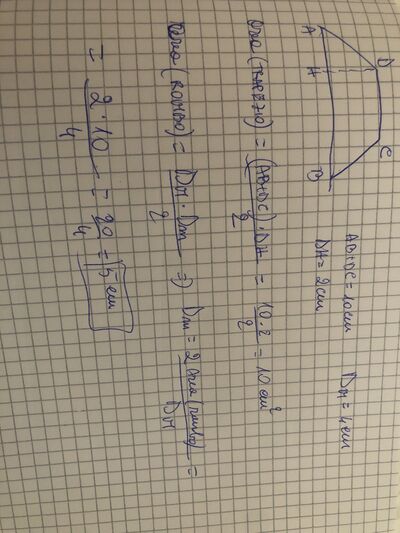 A H B
D C
AB+DC = 10cm
DH = 2cm
DM = 4cm
Area (TRAPEZIO) = (AB+DC)·DH / 2 = 10·2 / 2 = 10 cm²
Area (ROMBO) = DM · Dm / 2 => Dm = 2 Area (rombo) / DM =
= 2·10 / 4 = 20 / 4 = 5 cm